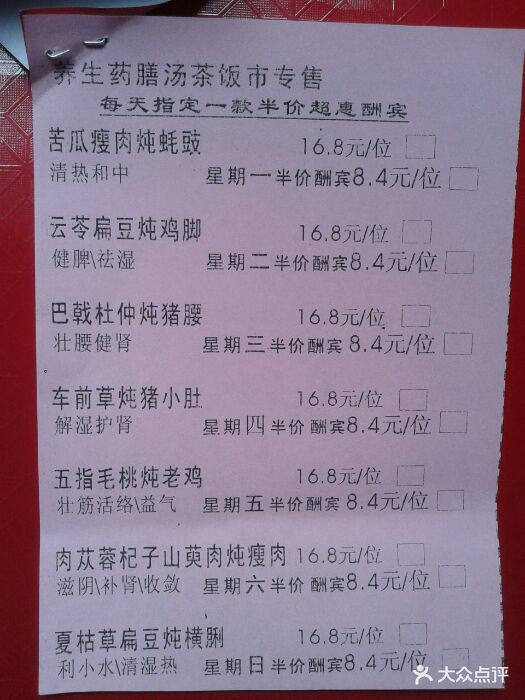 养生药膳汤茶饭市专售
每天指定一款半价超惠酬宾
苦瓜瘦肉炖蚝豉 16.8元/位
清热和中 星期一半价酬宾8.4元/位
云苓扁豆炖鸡脚 16.8元/位
健脾\祛湿 星期二半价酬宾8.4元/位
巴戟杜仲炖猪腰 16.8元/位
壮腰健肾 星期三半价酬宾8.4元/位
车前草炖猪小肚 16.8元/位
解湿护肾 星期四半价酬宾8.4元/位
五指毛桃炖老鸡 16.8元/位
壮筋活络\益气 星期五半价酬宾8.4元/位
肉苁蓉杞子山萸肉炖瘦肉 16.8元/位
滋阴\补肾\收敛 星期六半价酬宾8.4元/位
夏枯草扁豆炖横脷 16.8元/位
利小水\清湿热 星期日半价酬宾8.4元/位
大众点评